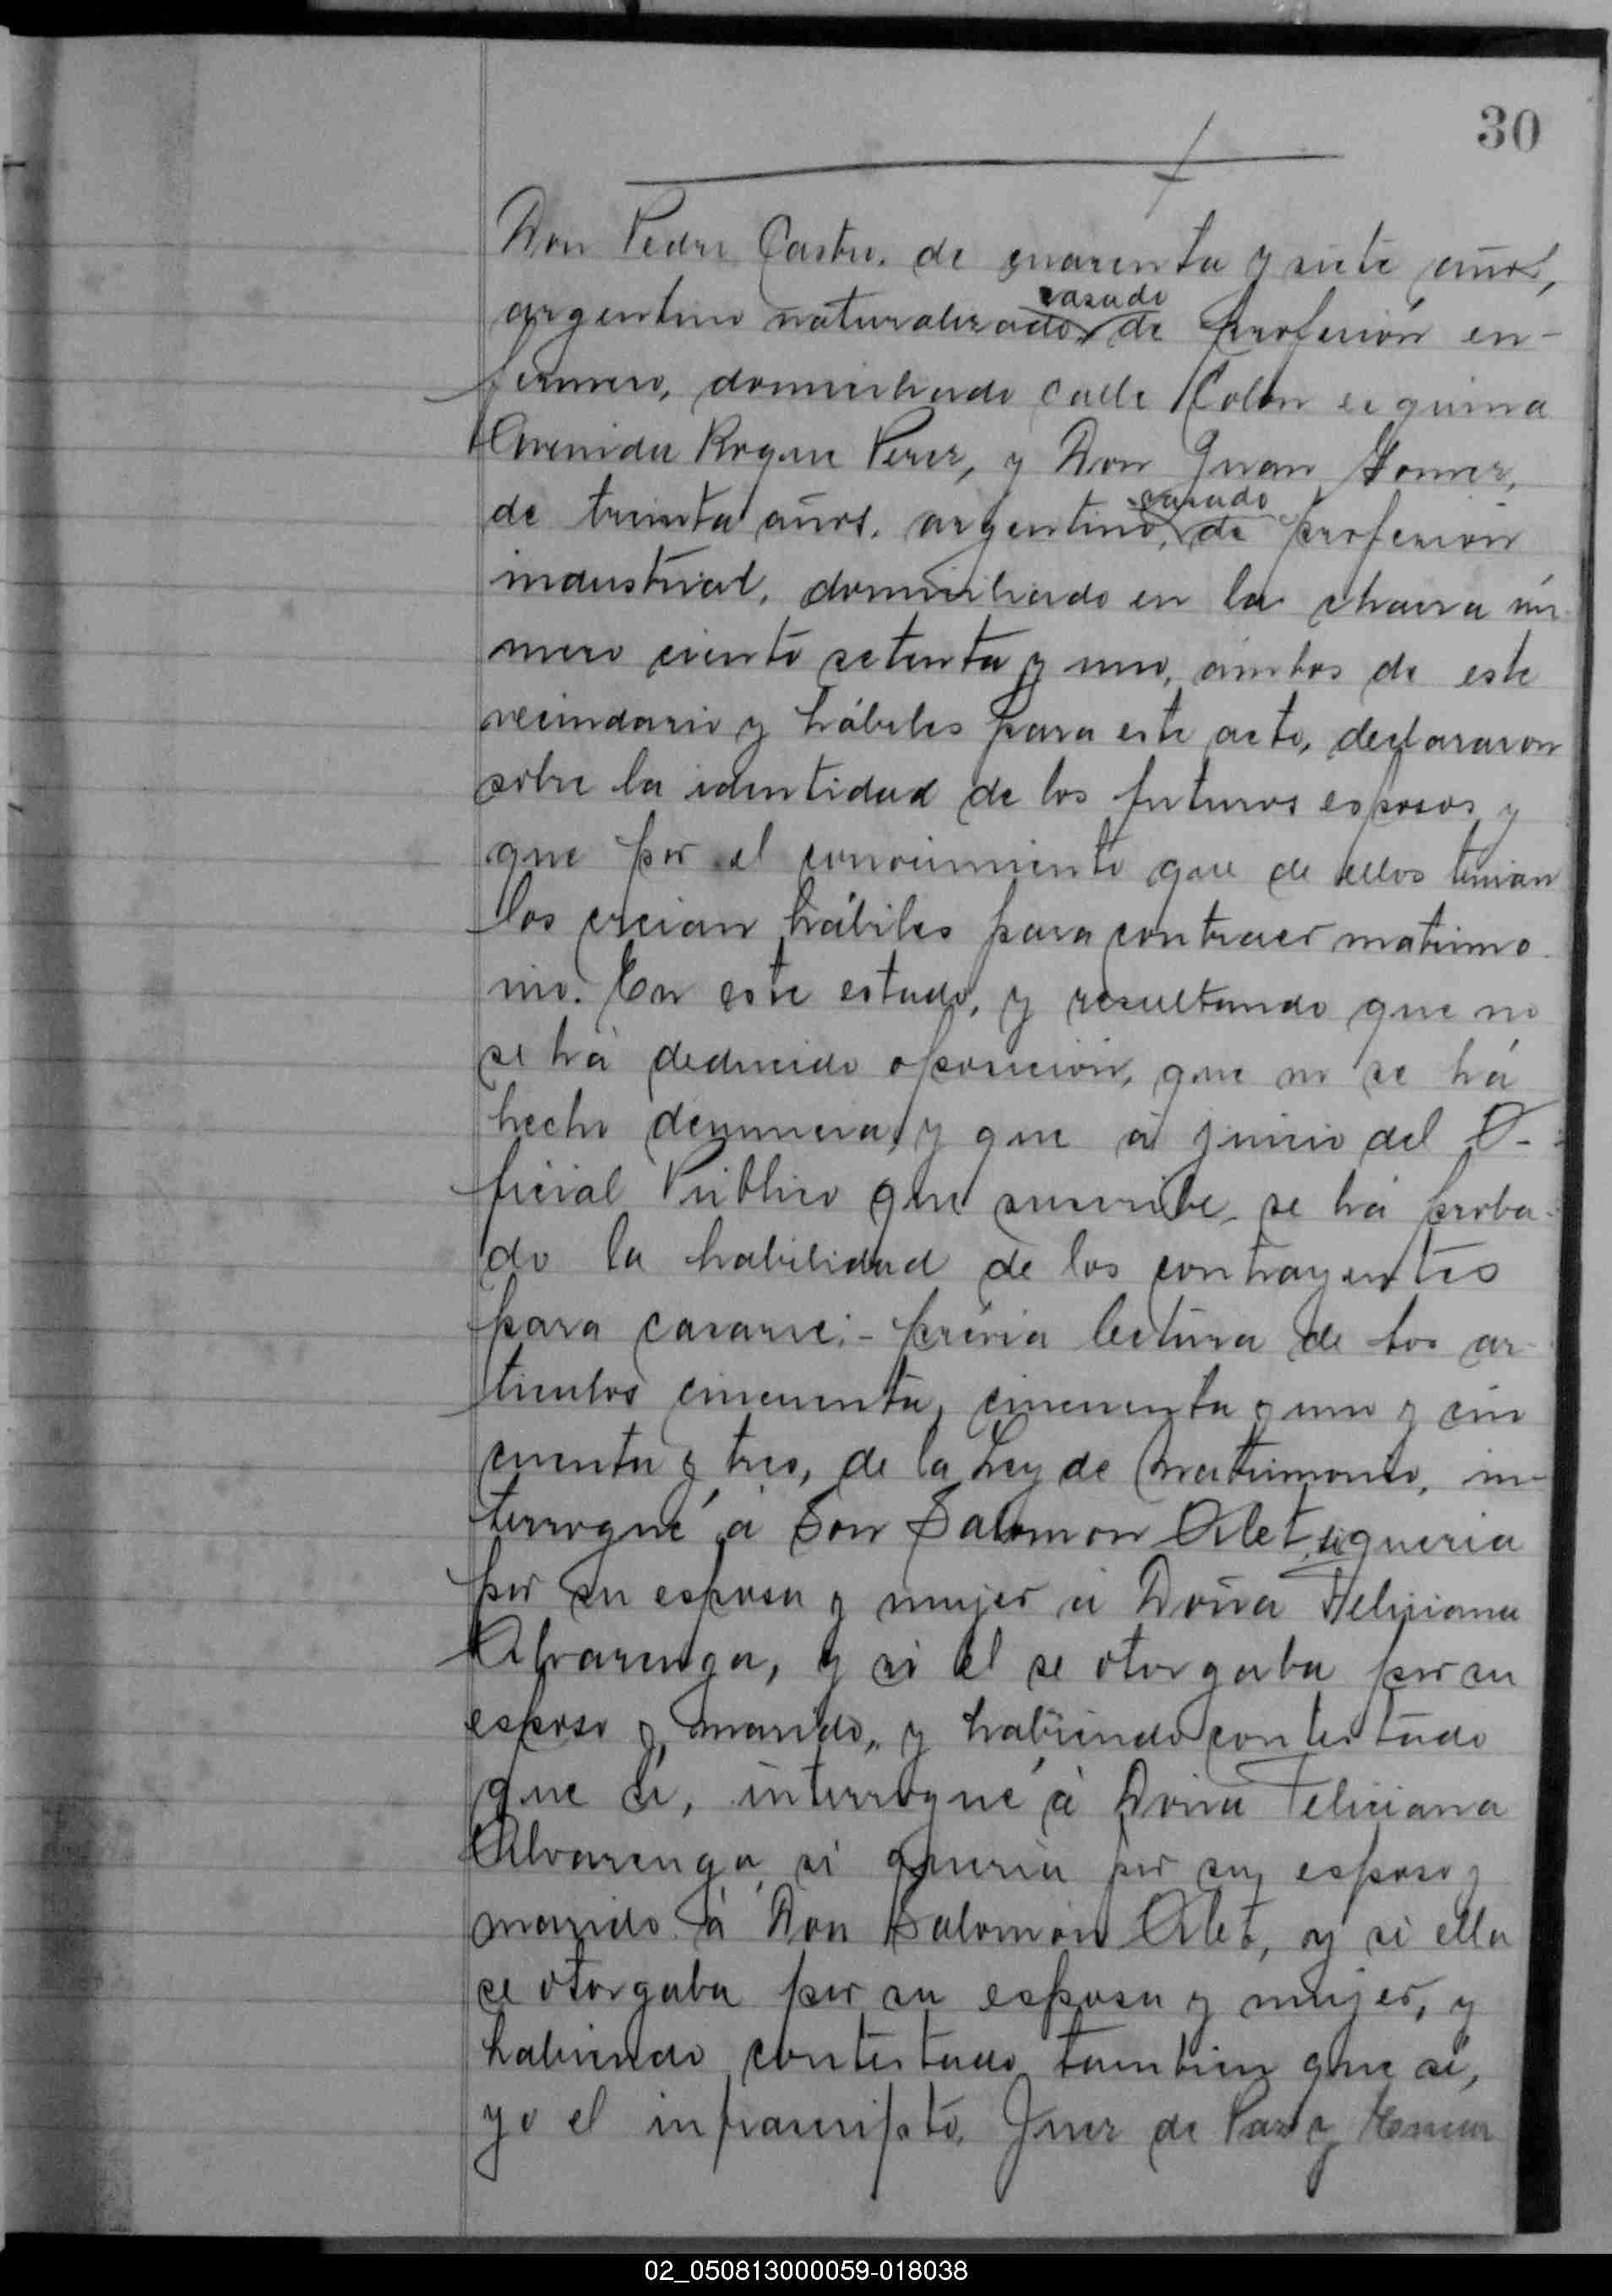 30
Don Pedro Castro, de cuarenta y siete años,
casado
argentino naturalizado, de profesión en-
fermero, domiciliado calle Colon esquina
Avenida Roque Perez, y Don Juan Gomez,
casado
de treinta años, argentino, de profesion
industrial, domiciliado en la chacra nú-
mero ciento setenta y uno, ambos de este
vecindario y hábiles para este acto, declararon
sobre la identidad de los futuros esposos y
que por el conocimiento que de ellos tenian
los creian hábiles para contraer matrimo-
nio. En este estado, y resultando que no
se há deducido oposición, que no se há
hecho denuncia, y que á juicio del O-
ficial Público que suscribe, se há proba-
do la habilidad de los contrayentes
para casarse;- prévia lectura de los ar-
tículos cincuenta, cincuenta y uno y cin
cuenta y tres, de la Ley de Matrimonio, in-
terrogué á Don Salomon Alet, si queria
por su esposa y mujer á Doña Feliciana
Alvarenga, y si él se otorgaba por su
esposo y marido, y habiendo contestado
que si, interrogué á Doña Feliciana
Alvarenga, si queria por su esposo y
marido á Don Salomón Alet, y si ella
se otorgaba por su esposa y mujer, y
habiendo contestado tambien que si,
yo el infrascripto, Juez de Paz y
02_050813000059-018038